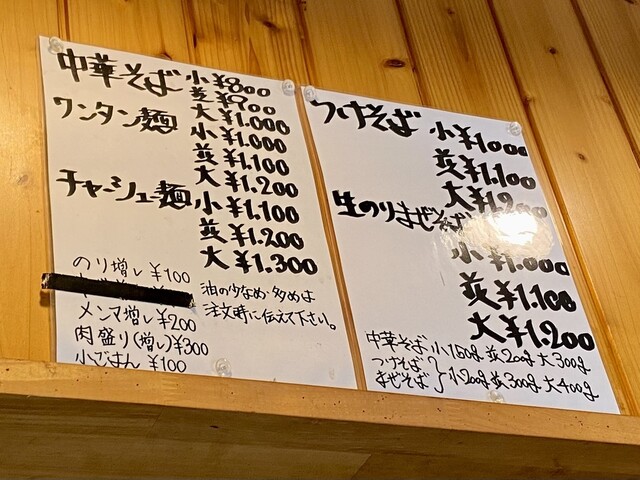 中華そば 小¥800
並¥900
大¥1.000
ワンタン麺 小¥1.000
並¥1.100
大¥1.200
チャーシュー麺 小¥1.100
並¥1.200
大¥1.300
のり増し ¥100
メンマ増し ¥200
肉盛り(増し)¥300
小ごはん ¥100
油の少なめ・多めは
注文時に伝えて下さい。
つけそば 小¥1.000
並¥1.100
大¥1.200
生のりまぜそば
小¥1.000
並¥1.100
大¥1.200
中華そば 小150g 並200g 大300g
つけそば
まぜそば } 小200g 並300g 大400g